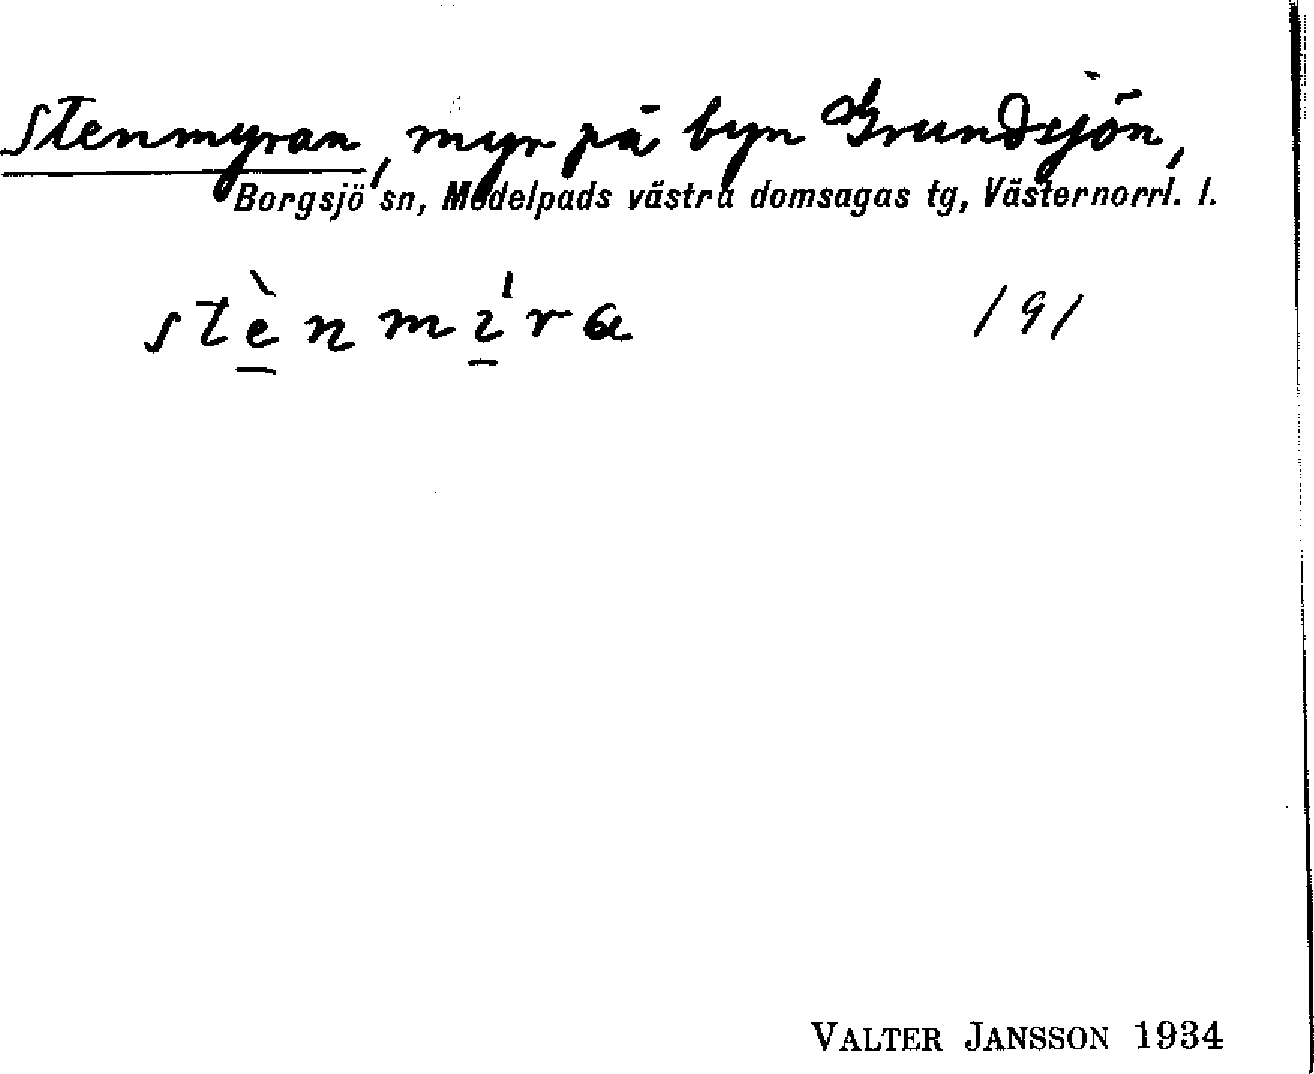 Stenmyran, myr på byn Grundsjön,
Borgsjö sn, Medelpads västra domsagas tg, Västernorrl. l.
stè̱nmı̱́ra 191
VALTER JANSSON 1934